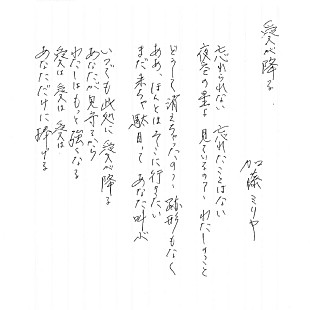 愛が降る
加藤ミリヤ
忘れられない 忘れたことはない
夜空の星よ 見ているの? わたしのこと
どうして消えちゃったの? 跡形もなく
ああ、ほんとはそこに行きたい
まだ来ちゃ駄目って あなた叫ぶ
いつでも此処に愛が降る
あなたが見守ってるから
わたしはもっと強くなる
愛は 愛は 愛は
あなただけに捧げる